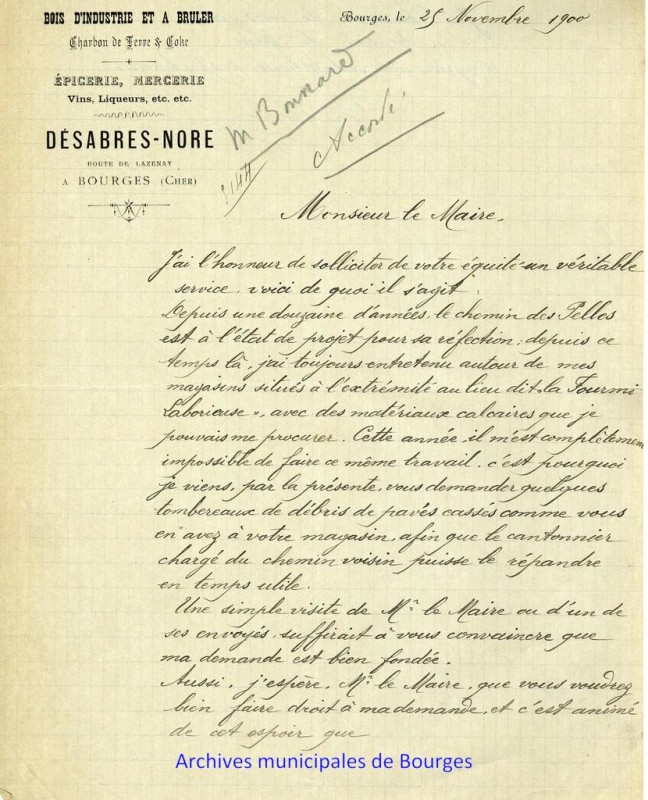 BOIS D'INDUSTRIE ET A BRULER
Charbon de Terre & Coke
ÉPICERIE, MERCERIE
Vins, Liqueurs, etc. etc.
DÉSABRES-NORE
ROUTE DE LAZENAY
A BOURGES (CHER)
Bourges, le 25 Novembre 1900
M Bonnard
Accordé
Monsieur le Maire.
J'ai l'honneur de solliciter de votre équité un véritable
service. voici de quoi il s'agit:
Depuis une douzaine d'années, le chemin des Pelles
est à l'état de projet pour sa réfection, depuis ce
temps là, j'ai toujours entretenu autour de mes
magasins situés à l'extrémité au lieu dit "la Fourmi
Laborieuse", avec des matériaux calcaires que je
pouvais me procurer. Cette année, il m'est complètement
impossible de faire ce même travail, c'est pourquoi
je viens, par la présente, vous demander quelques
tombereaux de débris de pavés cassés comme vous
en avez à votre magasin, afin que le cantonnier
chargé du chemin voisin puisse le répandre
en temps utile.
Une simple visite de Mr le Maire ou d'un de
ses envoyés, suffirait à vous convaincre que
ma demande est bien fondée.
Aussi, j'espère, Mr le Maire, que vous voudrez
bien faire droit à ma demande, et c'est animé
de cet espoir que
Archives municipales de Bourges